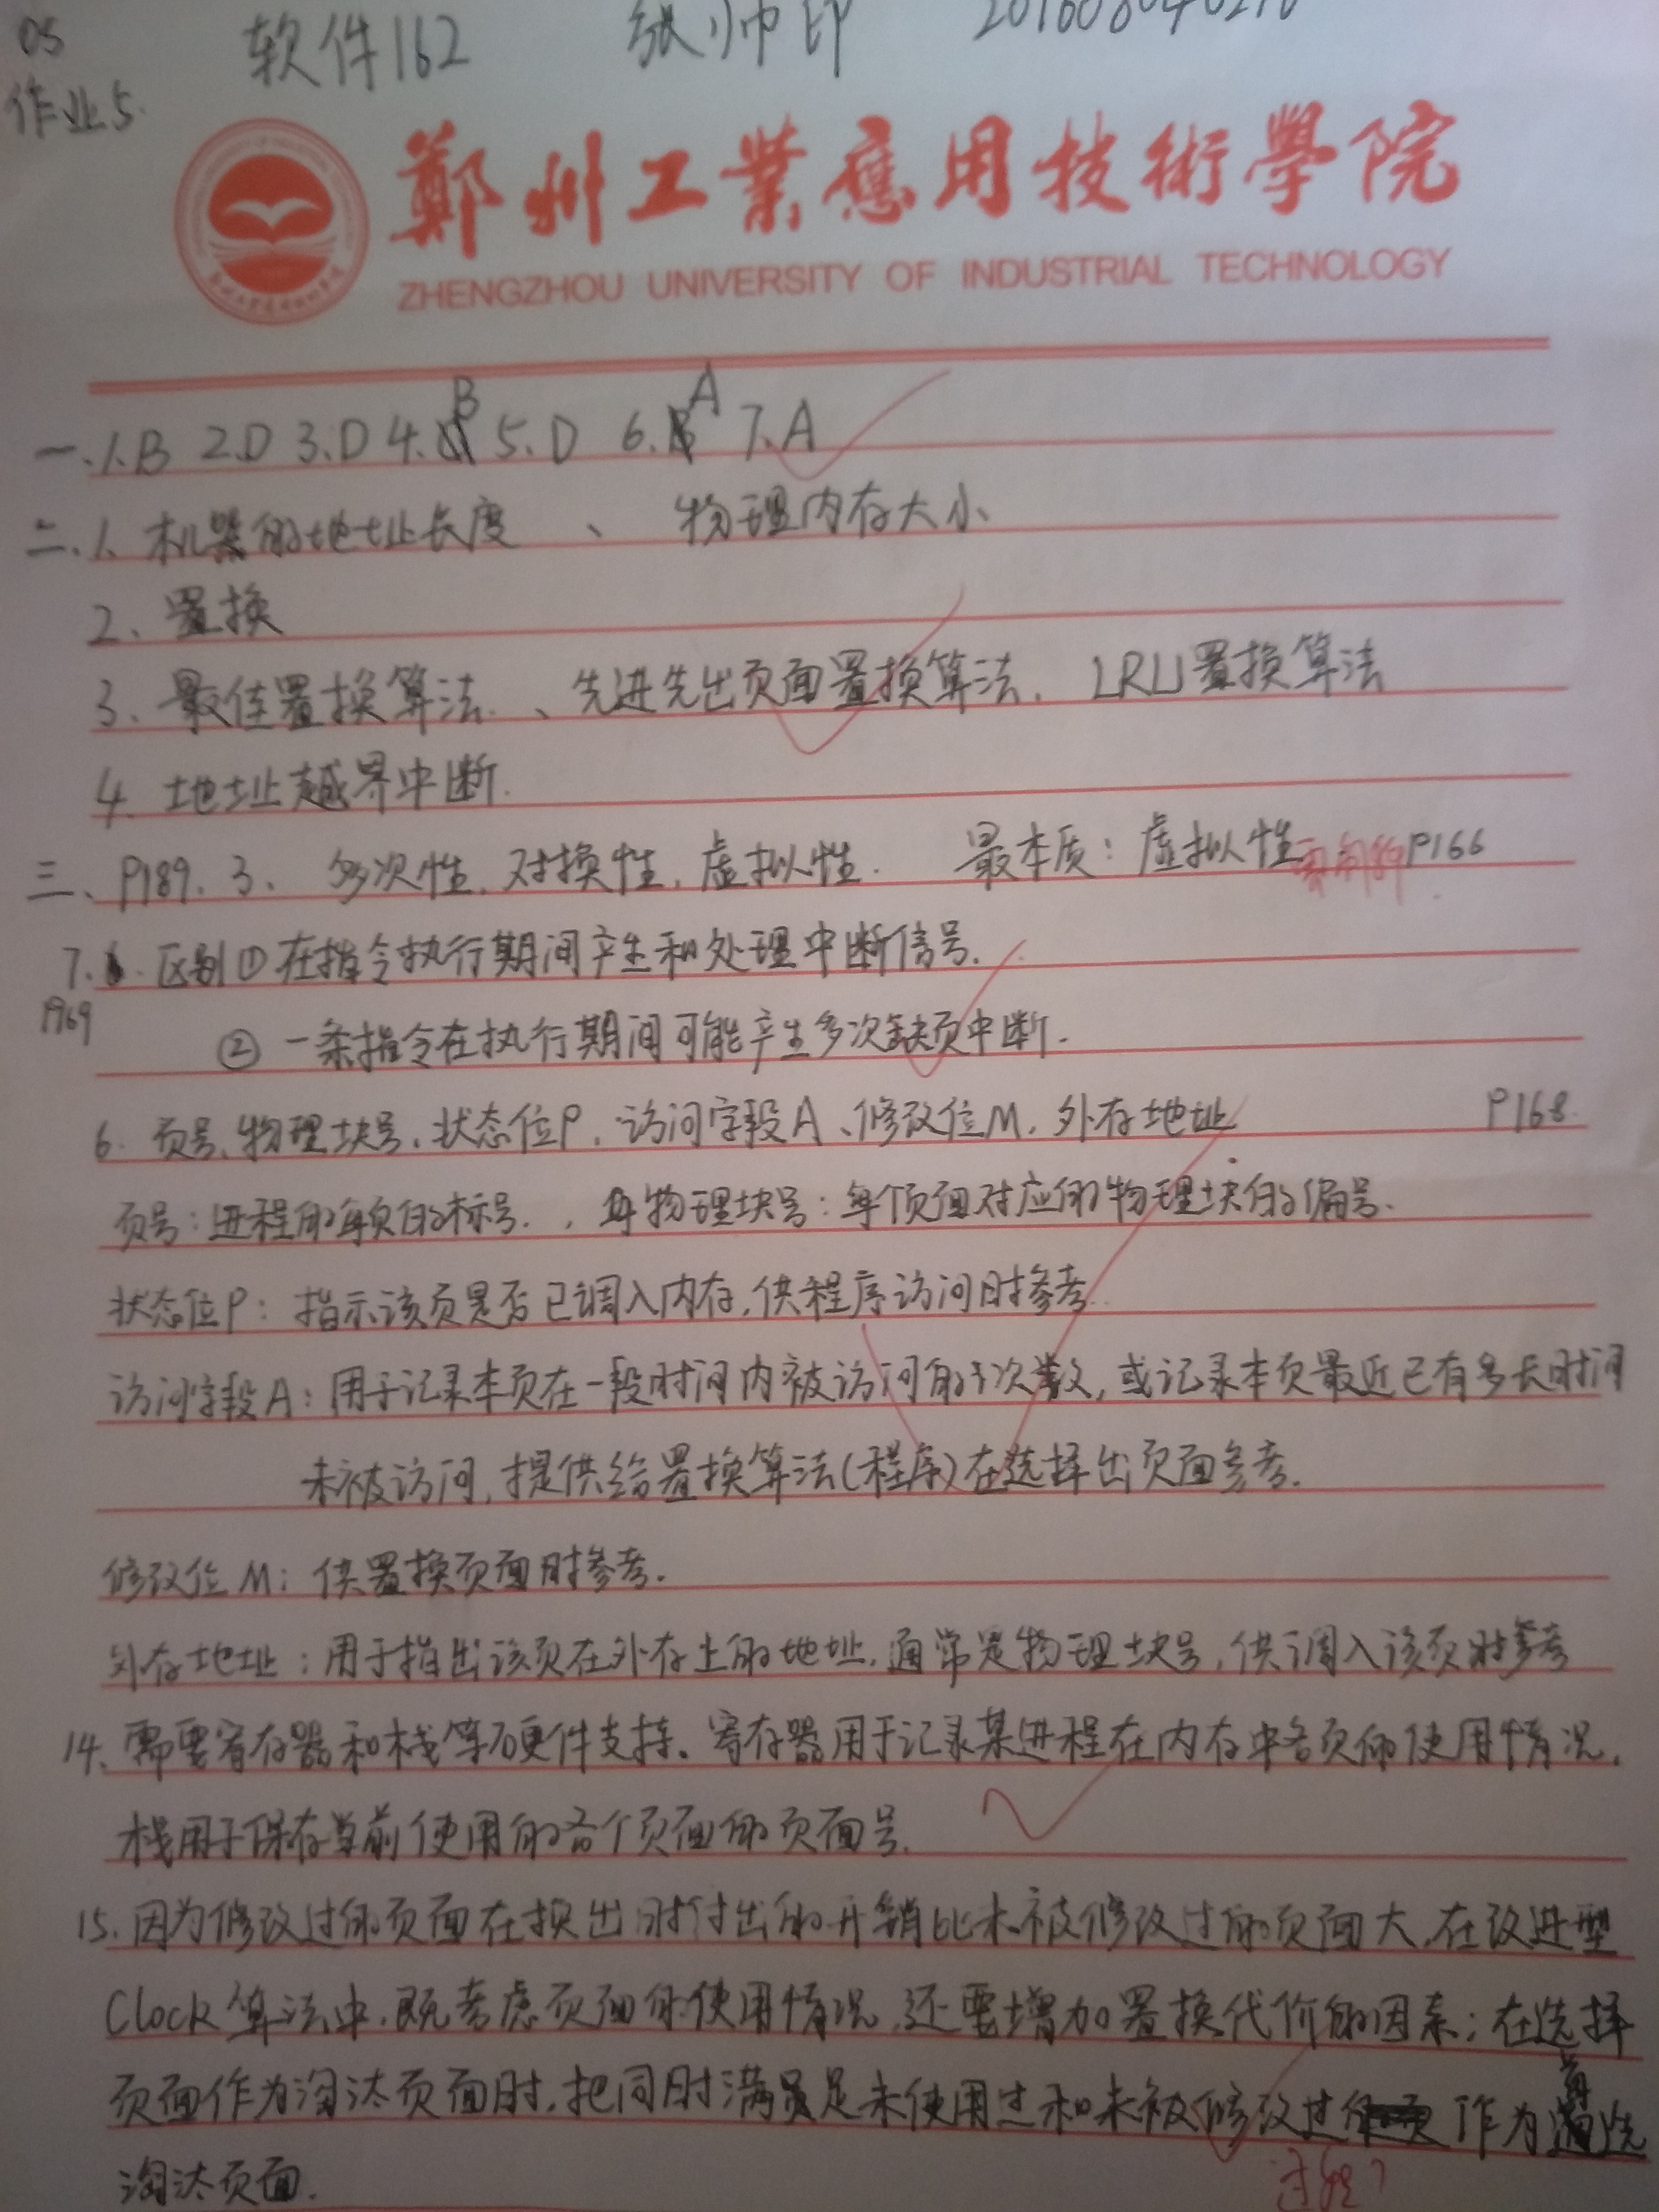 OS 软件162 张帅印
作业5.
鄭州工業應用技術學院
ZHENGZHOU UNIVERSITY OF INDUSTRIAL TECHNOLOGY
一、1.B 2.D 3.D 4.B 5.D 6.A 7.A
二、1、机器的地址长度 、 物理内存大小
2、置换
3、最佳置换算法、先进先出页面置换算法、LRU置换算法
4. 地址越界中断.
三、P189. 3、 多次性, 对换性, 虚拟性. 最本质: 虚拟性 P166
7. 区别①在指令执行期间产生和处理中断信号.
P169
②一条指令在执行期间可能产生多次缺页中断.
6. 页号、物理块号、状态位P、访问字段A、修改位M、外存地址 P168
页号:进程的每页的标号. , 物理块号:每个页面对应的物理块的编号.
状态位P: 指示该页是否已调入内存,供程序访问时参考.
访问字段A:用于记录本页在一段时间内被访问的次数,或记录本页最近已有多长时间
未被访问,提供给置换算法(程序)在选择出页面参考.
修改位M:供置换页面时参考.
外存地址:用于指出该页在外存上的地址,通常是物理块号,供调入该页时参考
14、需要寄存器和栈等硬件支持。寄存器用于记录某进程在内存中各页的使用情况,
栈用于保存当前使用的各个页面的页面号.
15.因为修改过的页面在换出时付出的开销比未被修改过的页面大,在改进型
Clock算法中,既考虑页面的使用情况,还要增加置换代价的因素;在选择
页面作为淘汰页面时,把同时满足未使用过和未被修改过 作为首选
淘汰页面.
过程?